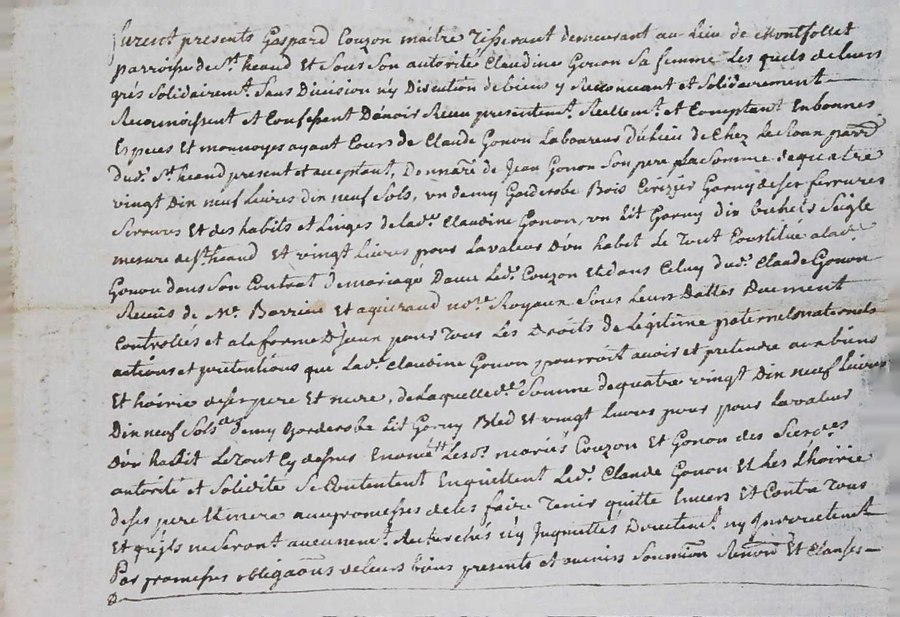 furent presents Gaspard Couzon maitre Tisserant demeurant au Lieu de Montfollet
parroisse de St. heand Et Sous Son autorité Claudine Gonon Sa femme Les quels de leurs
grés Solidairemt. Sans Division ny Discution de biens y Renoncant et Solidairement
Reconnoissent et Confessent D'avoir Receu presentemt. Reellemt. et Comptant En bonnes
Especes et monnoyes ayant Cours de Claude Gonon Laboureur du Lieu de Chez Le Roan parr.
dud. St. heand present et aceptant, Donnaře de Jean Gonon Son pere La Somme de quatre
vingt Dix neuf Livres dix neuf Sols, un demy Garderobe Bois Cerizier Garny de ses ferrures
Serrures Et des habits et Linges de lad. Claudine Gonon, un Lit Garny dix bichets Seigle
mesure de St. heand Et vingt Livres pour La valeur D'un habit Le Tout Constitué a lad.
Gonon dans Son Contrat de mariage Du Led. Couzon Et dans Celuy dud. Claude Gonon
Receus de Me. Barriere Et aguiraud nore. Royaux Sous Leurs Dattes Duement
Controllés et a la forme D'Iceux pour Tous Les Droits de Legitime paternels maternels
actions et pretentions que Lad. Claudine Gonon pourroit avoir et pretendre aux biens
Et hoirie de ses pere Et mere, de Laquelle de. Somme de quatre vingt Dix neuf Livres
Dix neuf Sols demy Garderobe Lit Garny Bled Et vingt Livres pour pour La valeur
D'un habit Le Tout Cy dessus Enoncé Lesd. mariés Couzon Et Gonon des
autorité et Solidité Se Contentent En quittent Led. Claude Gonon Et Les L'hoirie
de ses pere Et mere aux promesses de les faire Tenir quitte Envers Et Contre Tous
Et qu'ils ne Seront aucunemt. Recherchés n'y Inquiettés Directemt. ny Indirectemt.
Par promesses obligaõns de leurs biens presents et avenirs Soumiõn Renoñ Et Clauses